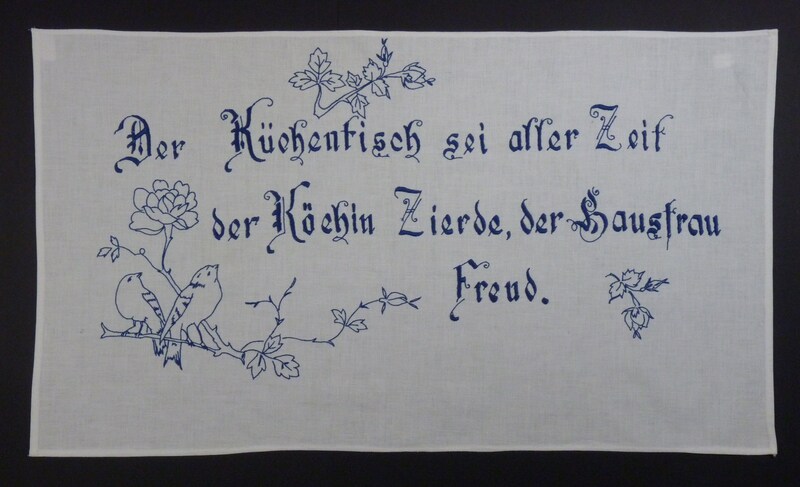 Der Küchentisch sei aller Zeit
der Köchin Zierde, der Hausfrau
Freud.